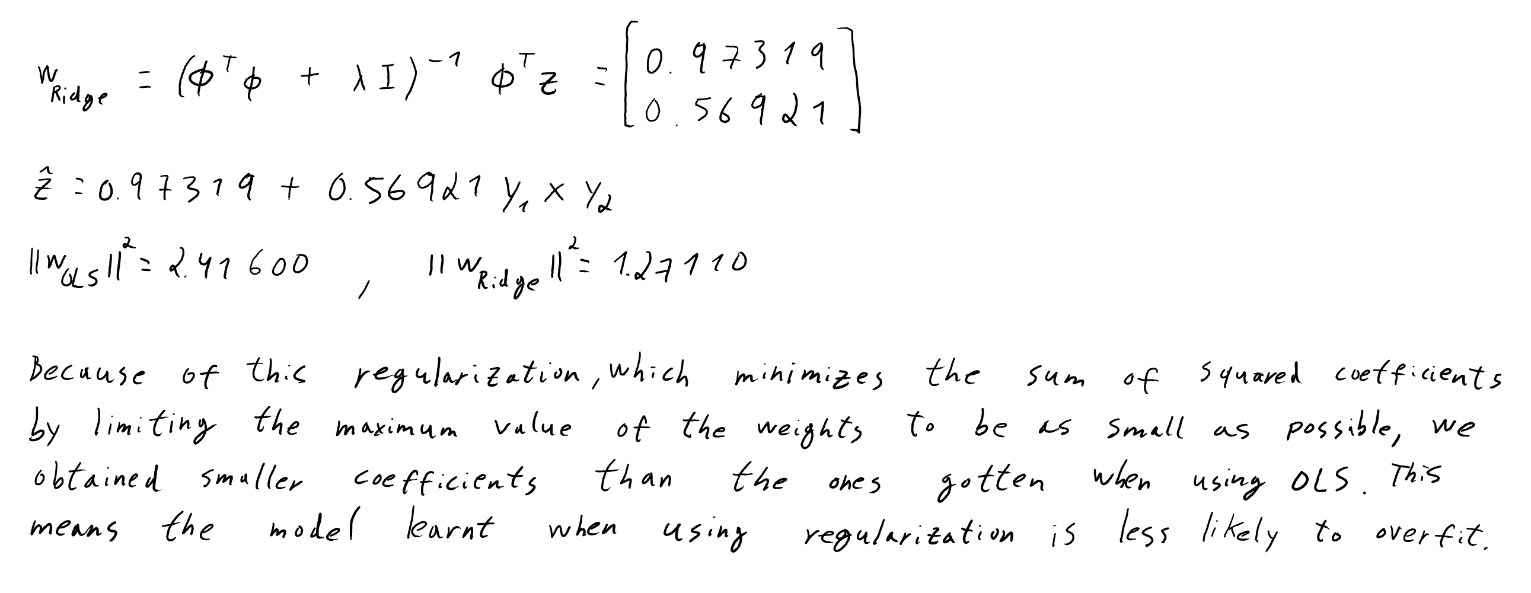 w_Ridge = (ϕᵀϕ + λI)⁻¹ ϕᵀz = [0.97319
0.56921]
ẑ = 0.97319 + 0.56921 y₁ × y₂
||w_OLS||² = 2.41600 , ||w_Ridge||² = 1.27110
Because of this regularization, which minimizes the sum of squared coefficients
by limiting the maximum value of the weights to be as small as possible, we
obtained smaller coefficients than the ones gotten when using OLS. This
means the model learnt when using regularization is less likely to overfit.